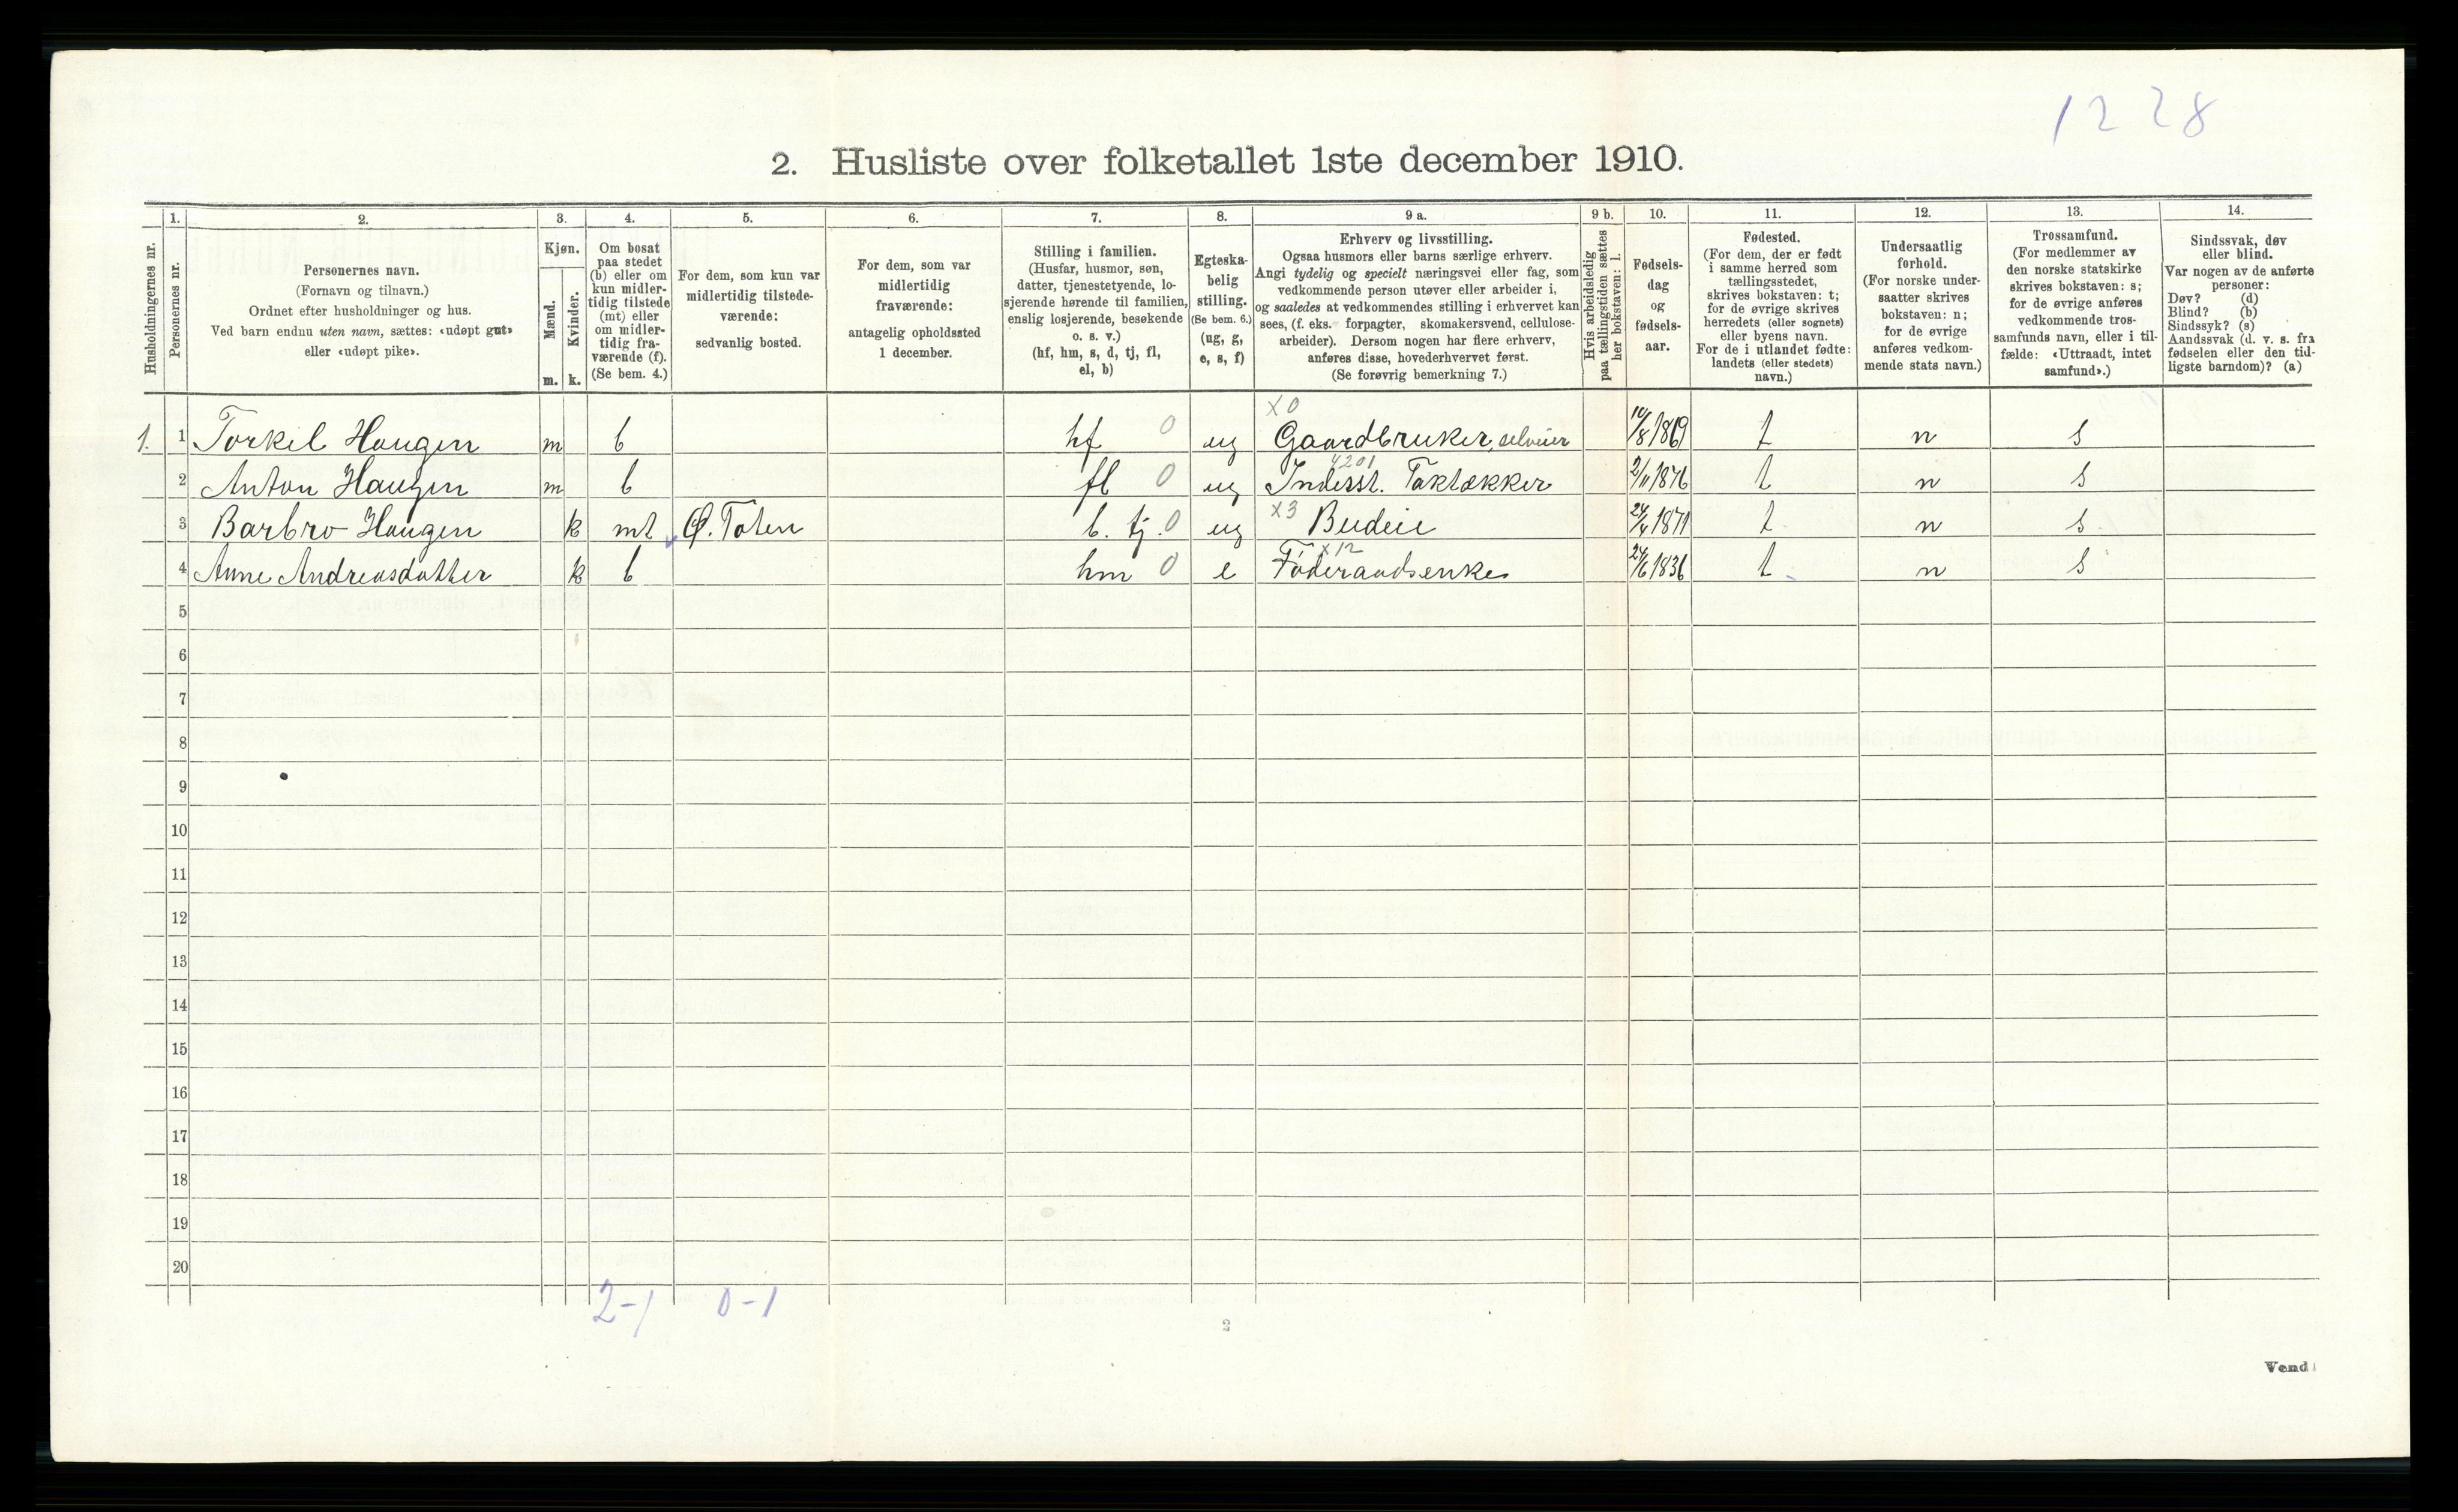 1228
2. Husliste over folketallet 1ste december 1910.
Husholdningernes nr.
1. Personernes nr.
2. Personernes navn.
(Fornavn og tilnavn.)
Ordnet efter husholdninger og hus.
Ved barn endnu uten navn, sættes: «udøpt gut»
eller «udøpt pike».
3. Kjøn.
Mænd. m.
Kvinder. k.
4. Om bosat
paa stedet
(b) eller om
kun midler-
tidig tilstede
(mt) eller
om midler-
tidig fra-
værende (f).
(Se bem. 4.)
5. For dem, som kun var
midlertidig tilstede-
værende:
sedvanlig bosted.
6. For dem, som var
midlertidig
fraværende:
antagelig opholdssted
1 december.
7. Stilling i familien.
(Husfar, husmor, søn,
datter, tjenestetyende, lo-
sjerende hørende til familien,
enslig losjerende, besøkende
o. s. v.)
(hf, hm, s, d, tj, fl,
el, b)
8. Egteska-
belig
stilling.
(Se bem. 6.)
(ug, g,
e, s, f)
9 a. Erhverv og livsstilling.
Ogsaa husmors eller barns særlige erhverv.
Angi tydelig og specielt næringsvei eller fag, som
vedkommende person utøver eller arbeider i,
og saaledes at vedkommendes stilling i erhvervet kan
sees, (f. eks. forpagter, skomakersvend, cellulose-
arbeider). Dersom nogen har flere erhverv,
anføres disse, hovederhvervet først.
(Se forøvrig bemerkning 7.)
9 b. Hvis arbeidsledig
paa tællingstiden sættes
her bokstaven: l.
10. Fødsels-
dag
og
fødsels-
aar.
11. Fødested.
(For dem, der er født
i samme herred som
tællingsstedet,
skrives bokstaven: t;
for de øvrige skrives
herredets (eller sognets)
eller byens navn.
For de i utlandet fødte:
landets (eller stedets)
navn.)
12. Undersaatlig
forhold.
(For norske under-
saatter skrives
bokstaven: n;
for de øvrige
anføres vedkom-
mende stats navn.)
13. Trossamfund.
(For medlemmer av
den norske statskirke
skrives bokstaven: s;
for de øvrige anføres
vedkommende tros-
samfunds navn, eller i til-
fælde: «Uttraadt, intet
samfund».)
14. Sindssvak, døv
eller blind.
Var nogen av de anførte
personer:
Døv? (d)
Blind? (b)
Sindssyk? (s)
Aandssvak (d. v. s. fra
fødselen eller den tid-
ligste barndom)? (a)
x0
1. 1 Torkel Haugen m b hf 0 ug Gaardbruker, selveier 10/8 1869 t n s
4201
2 Anton Haugen m b fl 0 ug Indesst. Taktækker 2/11 1876 t n s
3 Barbro Haugen k mt Ø. Toten b. tj. 0 ug x3 Budeie 24/4 1871 t n s
x12
4 Anne Andreasdatter k b hm 0 e Føderaadsenke 24/6 1836 t n s
5
6
7
8
9
10
11
12
13
14
15
16
17
18
19
20
2-1 0-1
2
Vend